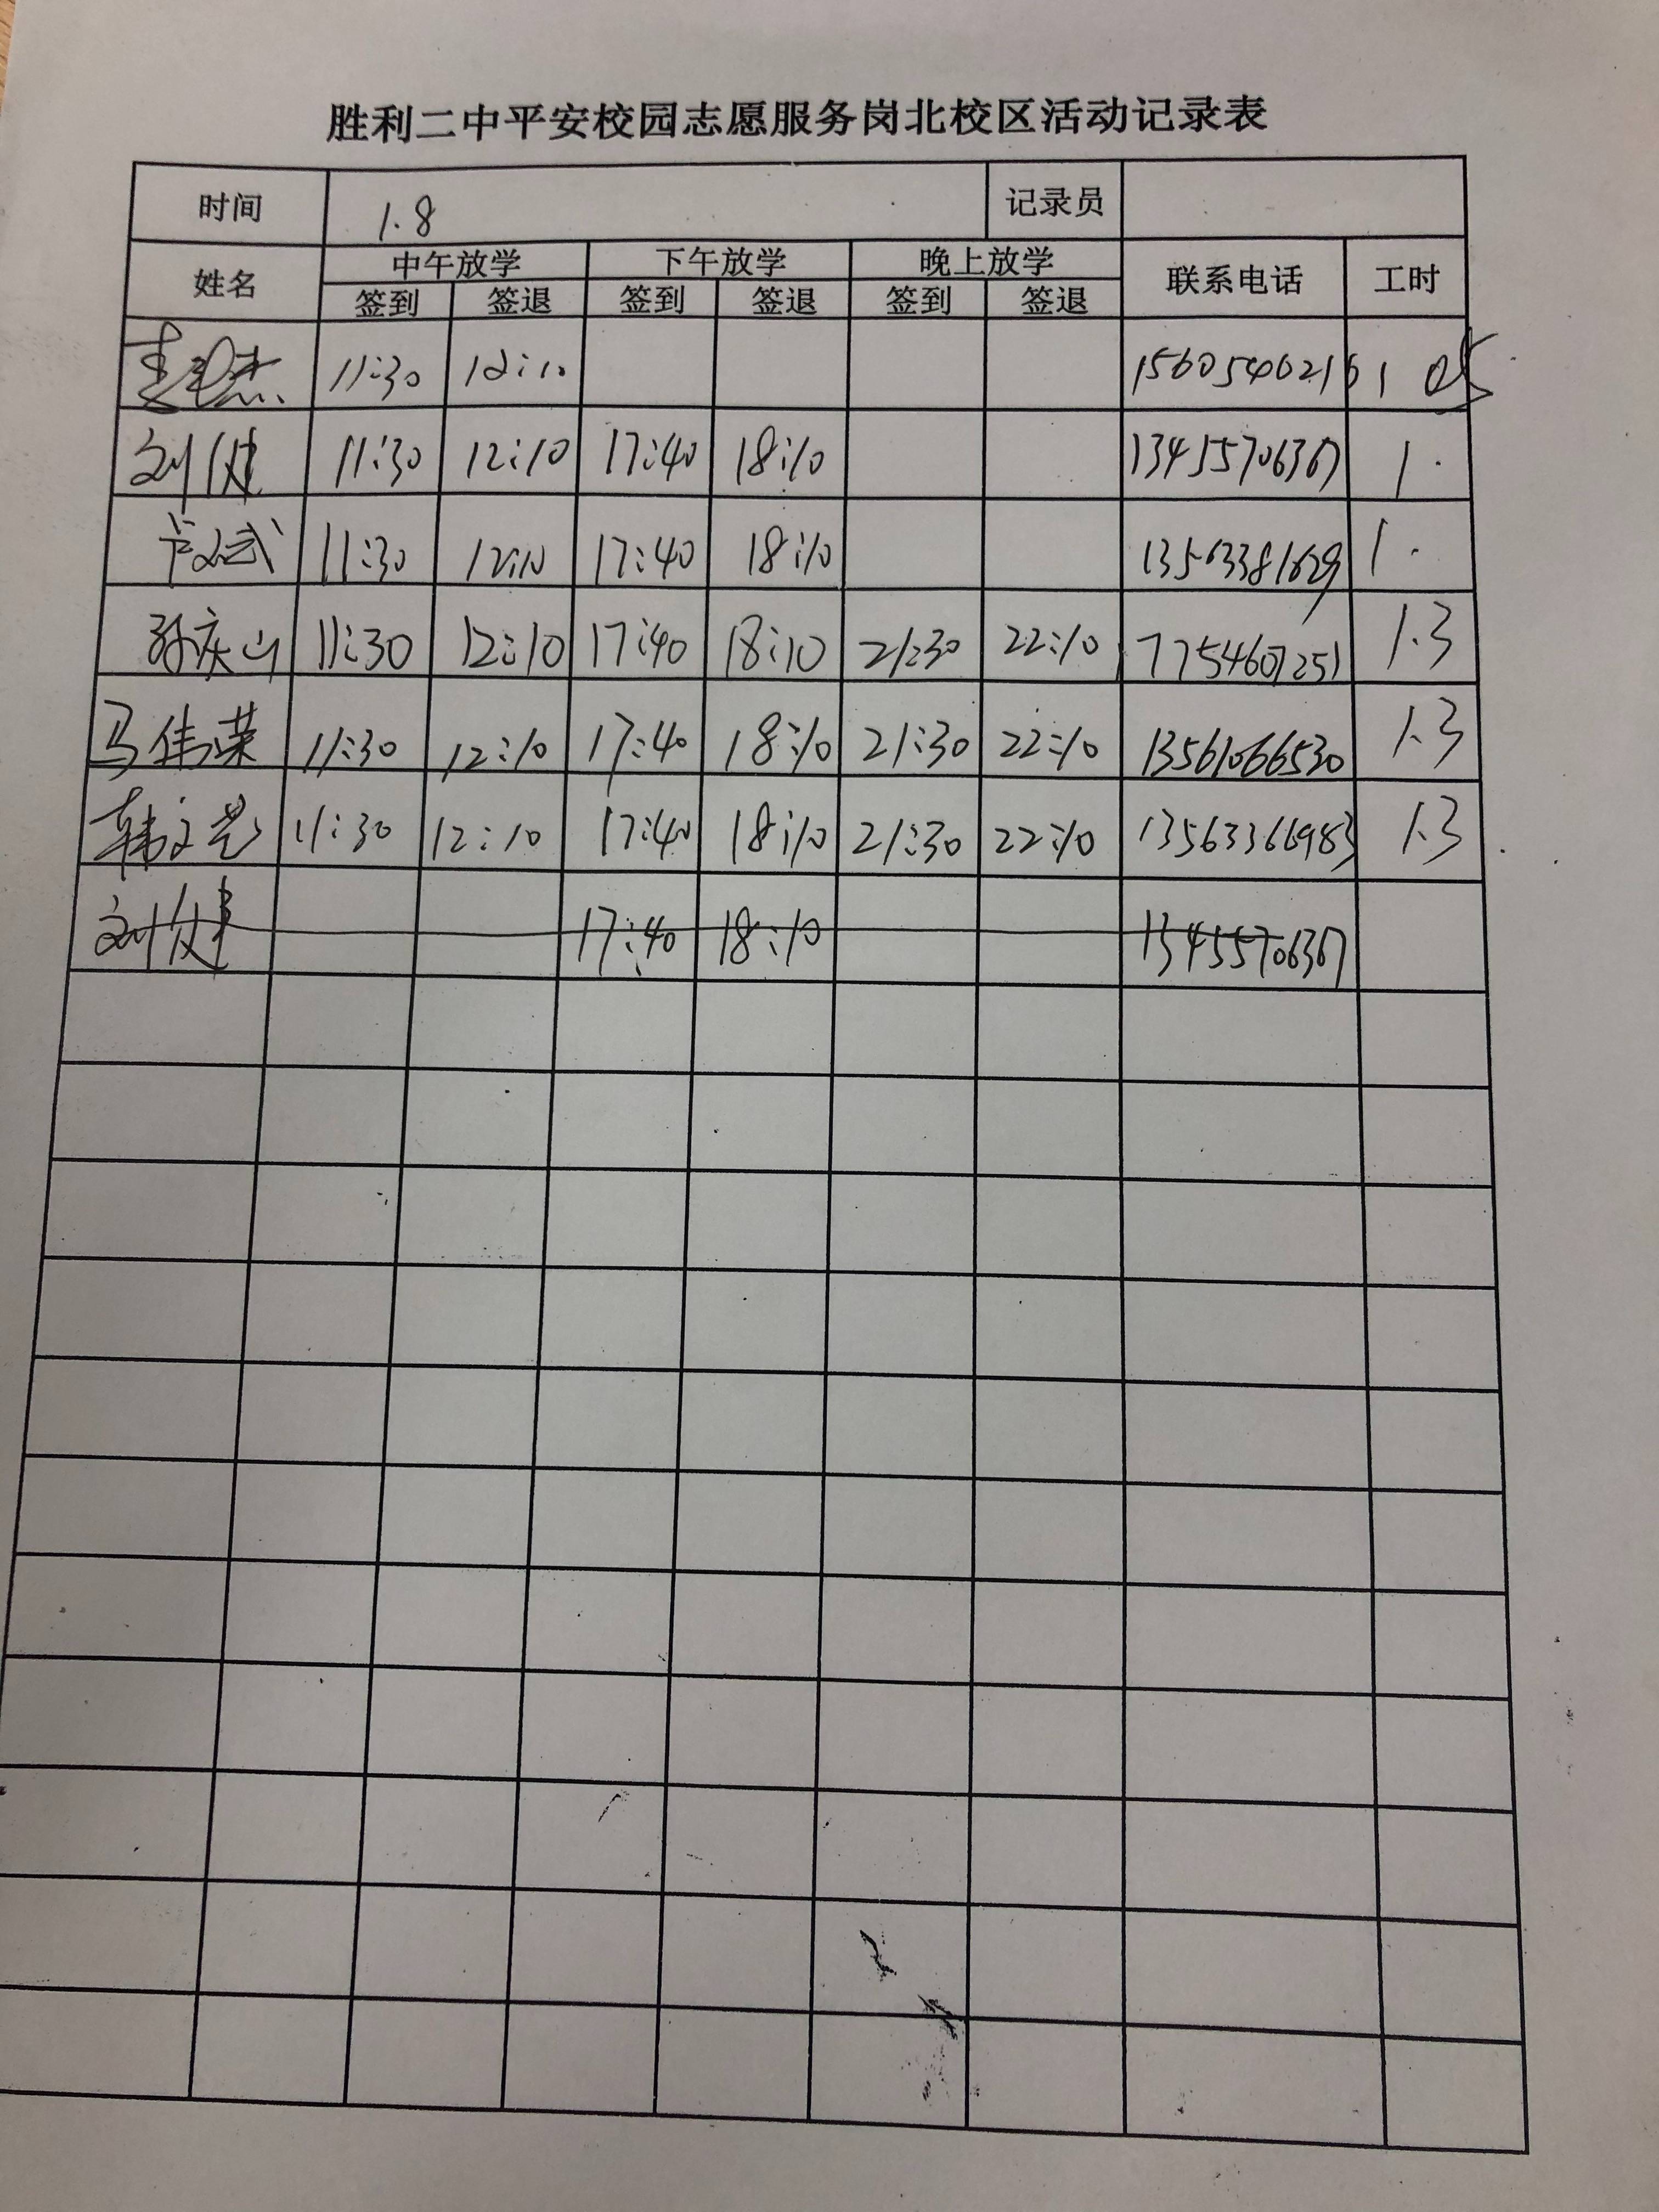 胜利二中平安校园志愿服务岗北校区活动记录表
时间 1.8 记录员
姓名 中午放学 下午放学 晚上放学 联系电话 工时
签到 签退 签到 签退 签到 签退
11:30 12:10 15605460216 1 05
刘健 11:30 12:10 17:40 18:10 13455706367 1.
11:30 12:10 17:40 18:10 13563381629 1.
孙庆山 11:30 12:10 17:40 18:10 21:30 22:10 17754607251 1.3
马伟荣 11:30 12:10 17:40 18:10 21:30 22:10 13561066530 1.3
韩文艺 11:30 12:10 17:40 18:10 21:30 22:10 13563366983 1.3
刘健 17:40 18:10 13455706367